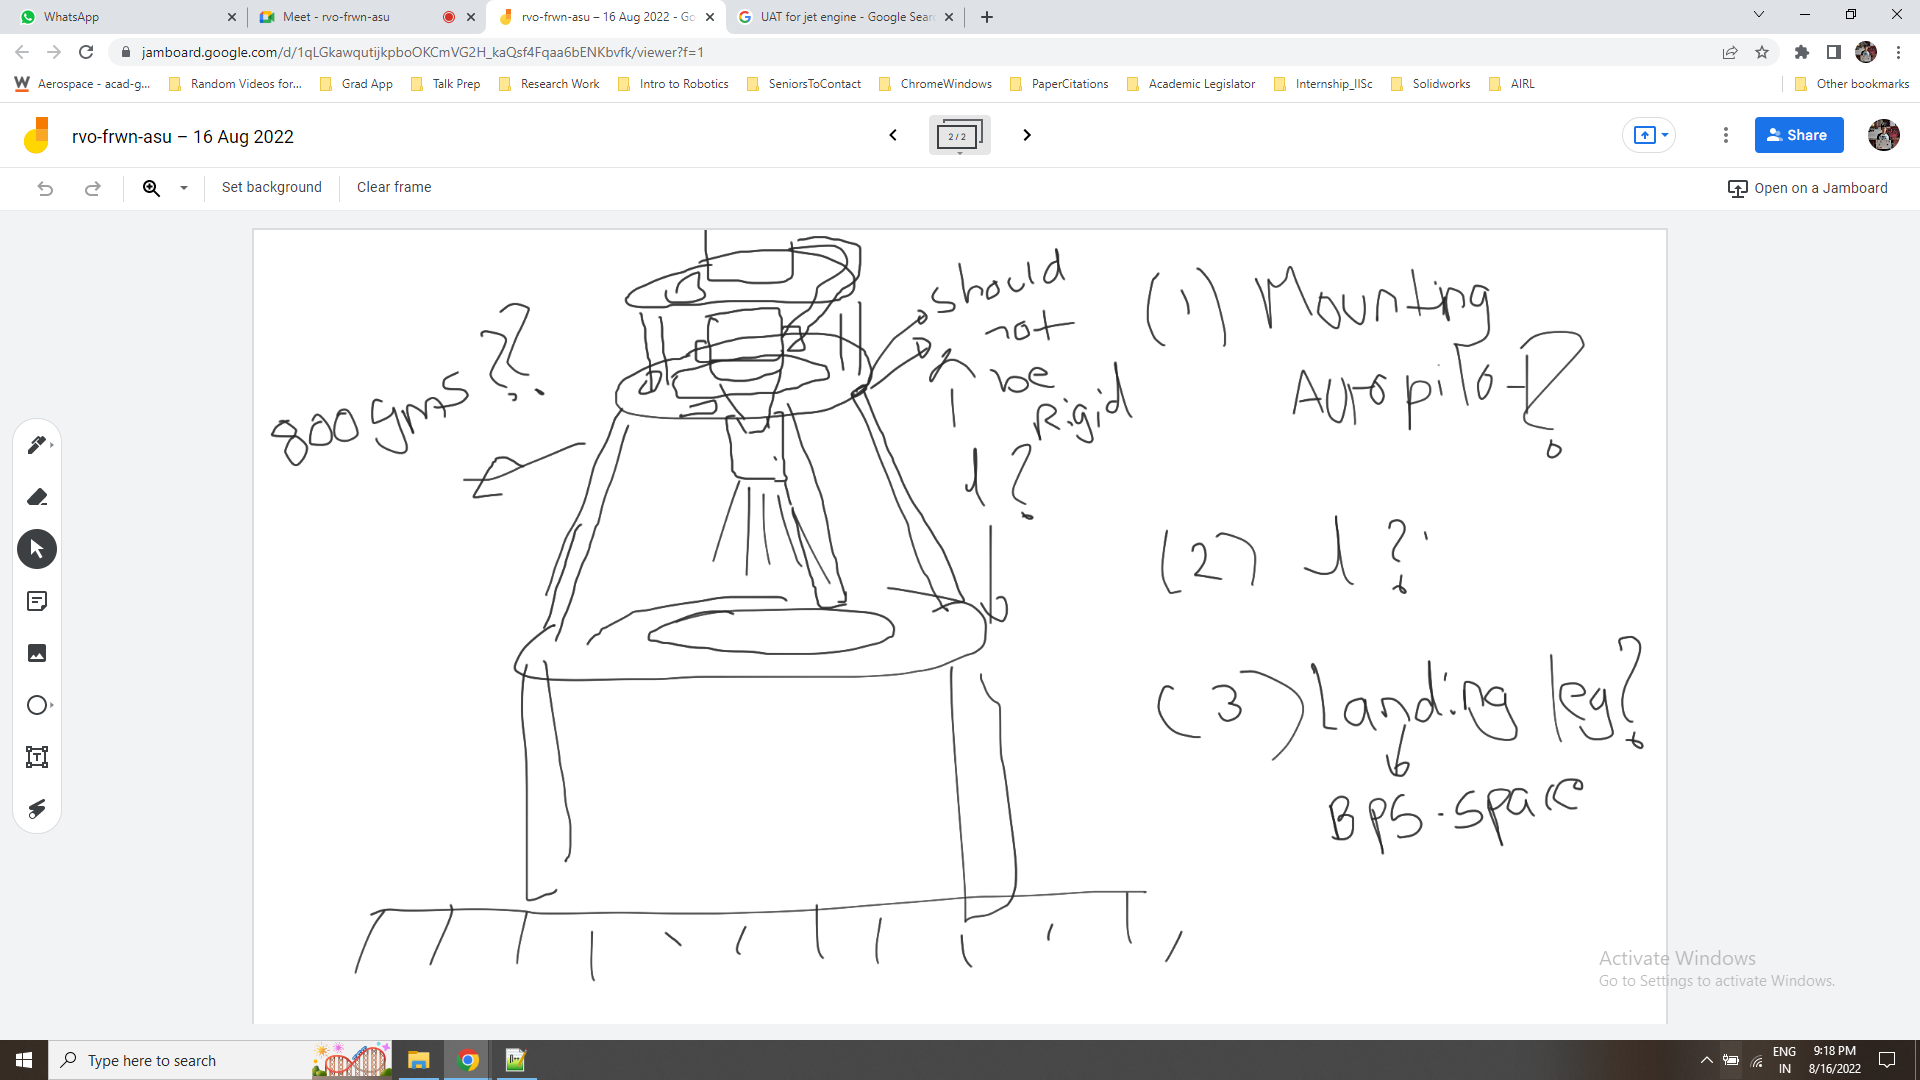 WhatsApp
Meet - rvo-frwn-asu
rvo-frwn-asu – 16 Aug 2022 - Go
UAT for jet engine - Google Sear
jamboard.google.com/d/1qLGkawqutijkpboOKCmVG2H_kaQsf4Fqaa6bENKbvfk/viewer?f=1
Aerospace - acad-g... Random Videos for... Grad App Talk Prep Research Work Intro to Robotics SeniorsToContact ChromeWindows PaperCitations Academic Legislator Internship_IISc Solidworks AIRL Other bookmarks
rvo-frwn-asu – 16 Aug 2022
2 / 2
Share
Set background Clear frame
Open on a Jamboard
800 gms ??
should
not
be
Rigid
l ?
(1) Mounting
(2) l ?
(3) Landing leg?
BPS-space
Activate Windows
Go to Settings to activate Windows.
Type here to search
ENG
IN
9:18 PM
8/16/2022